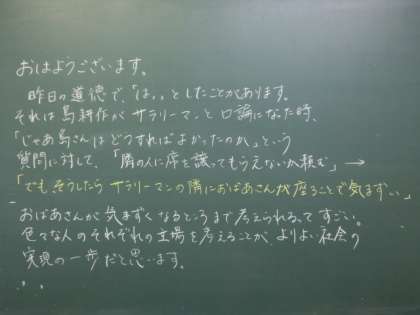 おはようございます。
昨日の道徳で、「はっ」としたことがあります。
それは島耕作がサラリーマンと口論になった時、
「じゃあ島さんはどうすればよかったのか」という
質問に対して、「隣の人に席を譲ってもらえないか頼む」→
「でもそうしたらサラリーマンの隣におばあさんが座ることで気まずい」
おばあさんが気まずくなるところまで考えられるってすごい。
色々な人のそれぞれの立場を考えることがよりよい社会の
実現の一歩だと思います。